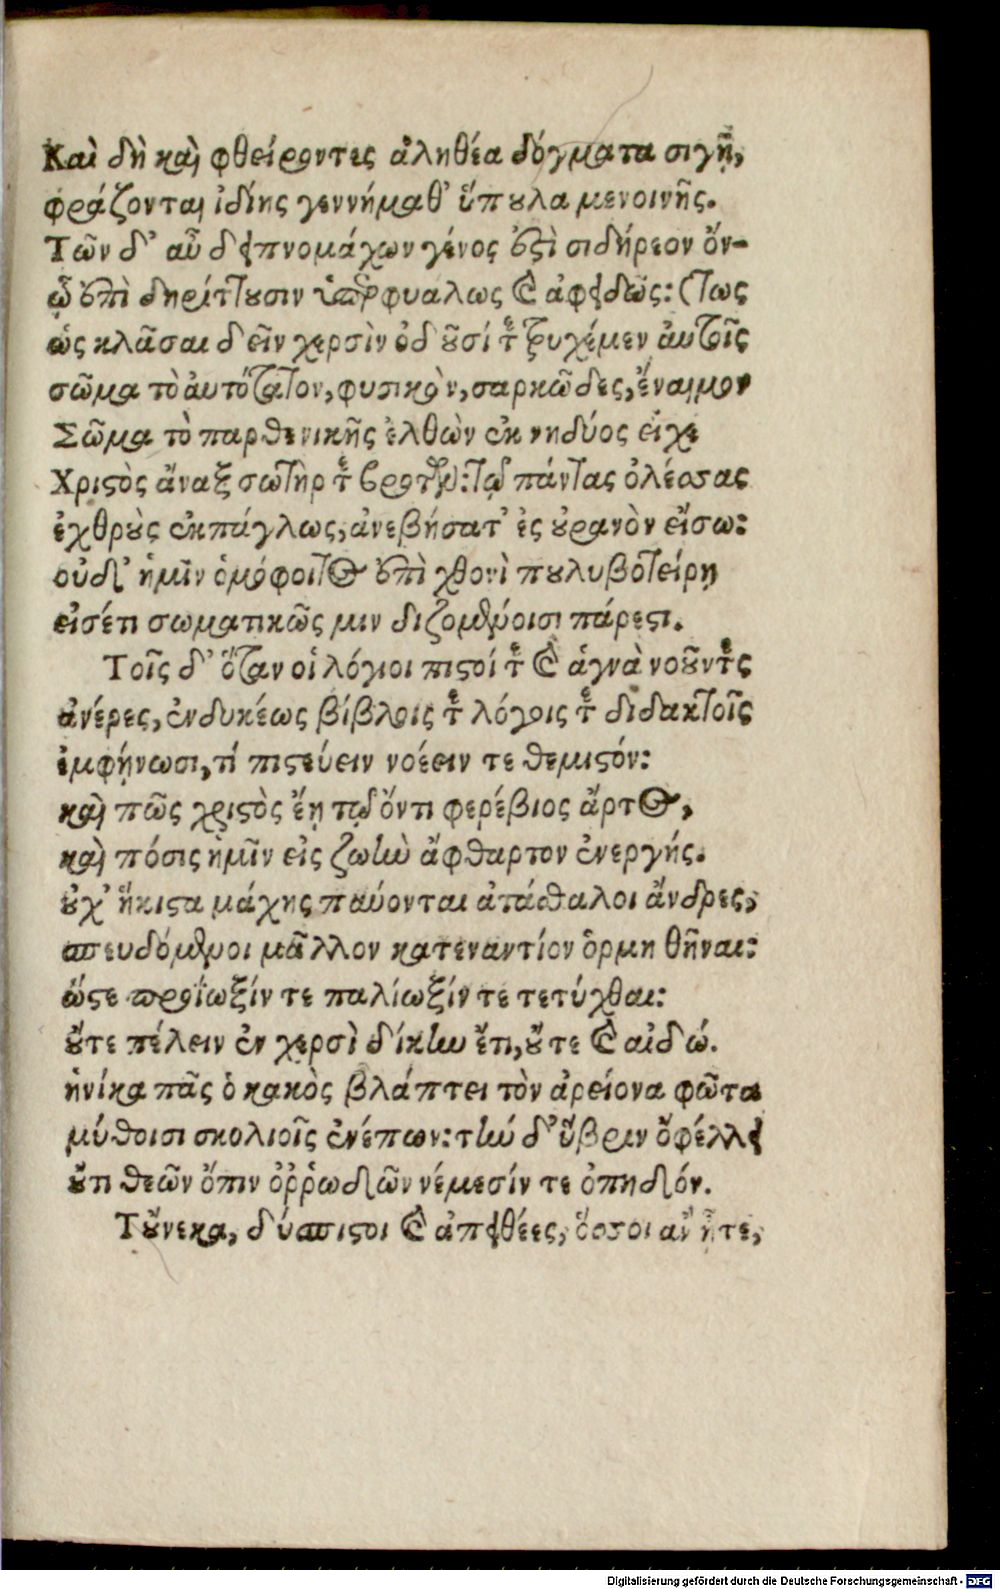 Καὶ δὴ καὶ φθείροντες ἀληθέα δόγματα σιγῇ,
φράζονται ἰδίης γεννήμαθ᾽ ὕπουλα μενοινῆς.
Τῶν δ᾽ αὖ δειπνομάχων γένος ἐστὶ σιδήρεον ὄν-
ᾧ ἐπὶ δηρίττουσιν ὑπερφυαλως καὶ ἀφειδῶς: (τως
ὡς κλᾶσαι δεῖν χερσὶν ὀδοῦσί τε τρυχέμεν αὐτοῖς
σῶμα τὸ αὐτότατον, φυσικὸν, σαρκῶδες, ἔναιμον
Σῶμα τὸ παρθενικῆς ἐλθὼν ἐκ νηδύος εἶχε
Χριστὸς ἄναξ σωτὴρ τε βροτῶν: τῷ πάντας ὀλέσσας
ἐχθροὺς ἐκπάγλως, ἀνεβήσατ᾽ ἐς οὐρανὸν εἴσω:
οὐδ᾽ ἡμῖν ὁμόφοιτος ἐπὶ χθονὶ πουλυβοτείρῃ
εἰσέτι σωματικῶς μιν διζομένοισι πάρεστι.
Τοῖς δ᾽ ὅταν οἱ λόγιοι πιστοί τε καὶ ἁγνὰ νοοῦντες
ἀνέρες, ἐνδυκέως βίβλοις τε λόγοις τε διδακτοῖς
ἐμφήνωσι, τί πιστεύειν νοέειν τε θεμιστόν:
καὶ πῶς χριστὸς ἔῃ τῷ ὄντι φερέβιος ἄρτος,
καὶ πόσις ἡμῖν εἰς ζωὴν ἄφθαρτον ἐνεργής.
οὐχ᾽ ἥκιστα μάχης παύονται ἀτάσθαλοι ἄνδρες,
σπευδόμενοι μᾶλλον κατεναντίον ὁρμηθῆναι:
ὥστε προΐωξίν τε παλίωξίν τε τετύχθαι:
οὔτε πέλειν ἐν χερσὶ δίκην ἔτι, οὔτε καὶ αἰδώ.
ἡνίκα πᾶς ὁ κακὸς βλάπτει τὸν ἀρείονα φῶτα
μύθοισι σκολιοῖς ἐνέπων: τὴν δ᾽ ὕβριν ὀφέλλει
οὔτι θεῶν ὄπιν ὀῤῥωδῶν νέμεσίν τε ὀπηδόν.
Τοὔνεκα, δύσπιστοι καὶ ἀπειθέες, ὅσσοι ἂν ἦτε,
Digitalisierung gefördert durch die Deutsche Forschungsgemeinschaft - DFG